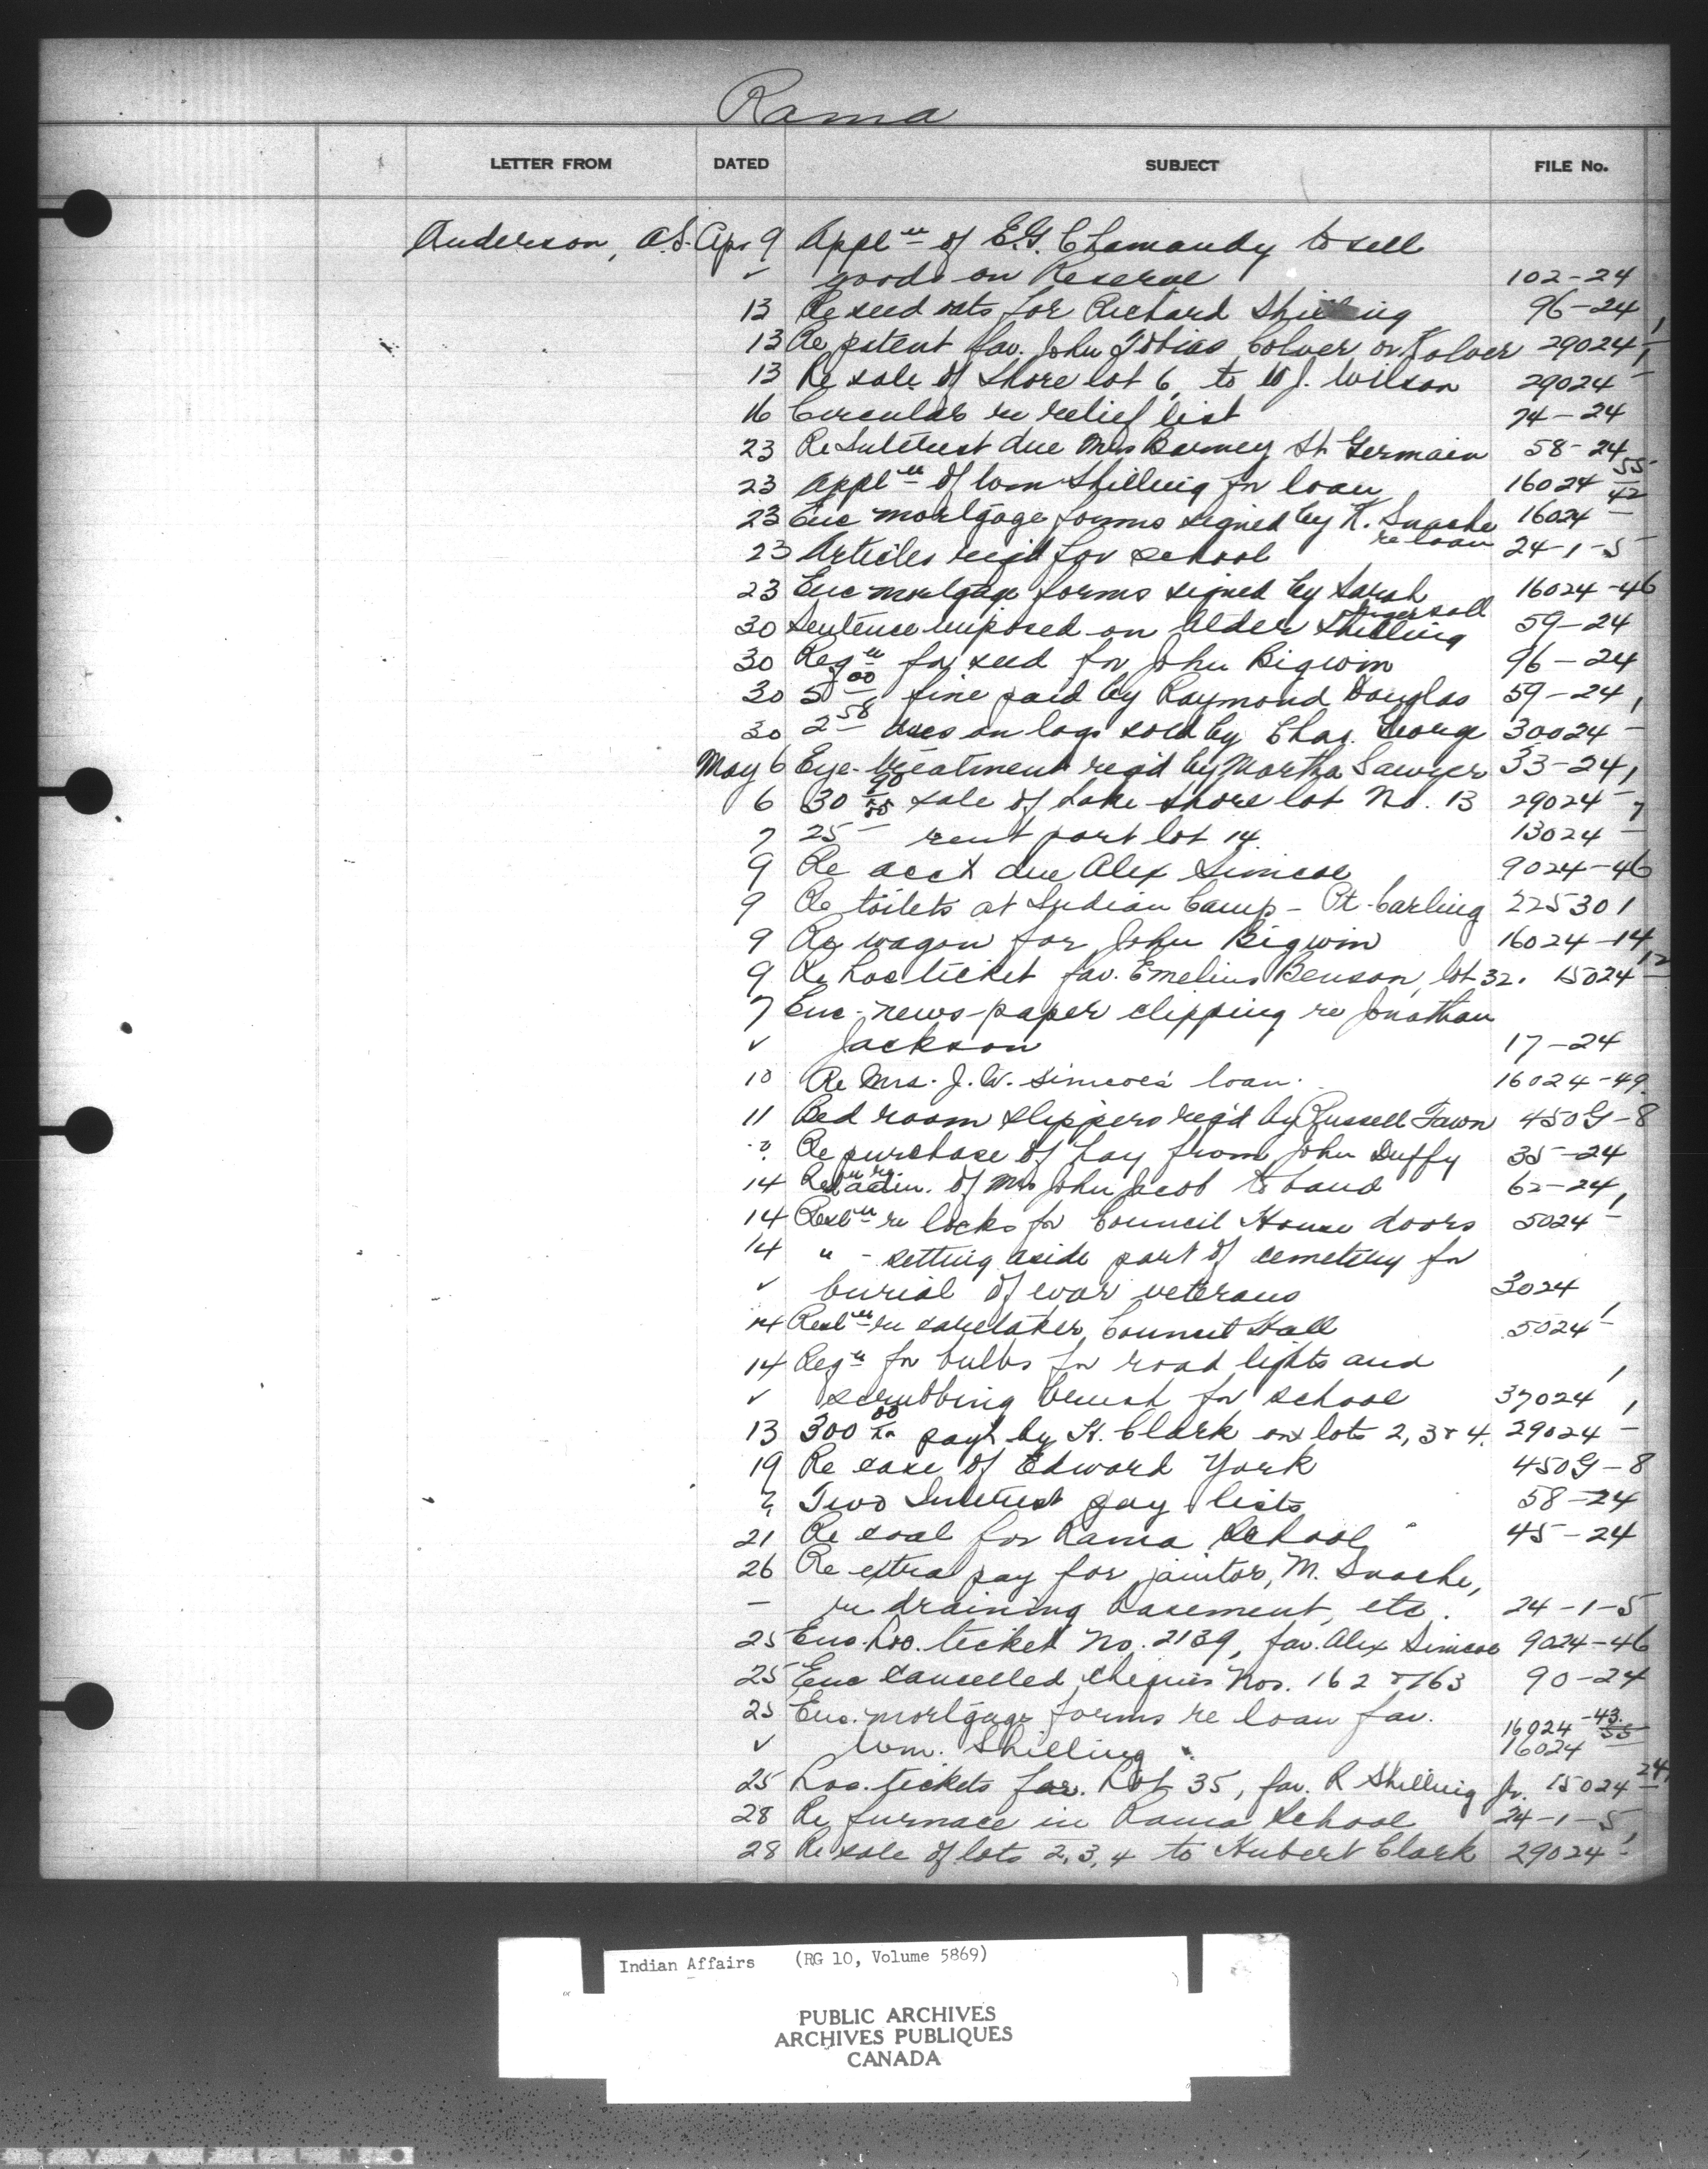 Rama
LETTER FROM DATED SUBJECT FILE No.
Anderson, A.S. Apr 9 Appl<u>n</u> of E.G. Chamandy to sell
✓ goods on Reserve 102-24
13 Re seed oats for Richard Shilling 96-24
13 Re patent fav. John Tobias Colver or Kolver 29024-1
13 Re sale of Shore lot 6, to W.J. Wilson 29024-1
16 Circular re relief list 74-24
23 Re Interest due Mrs Barney St. Germain 58-24
23 Appl<u>n</u> of Wm Shilling for loan 16024-55
23 Enc mortgage forms signed by K. Snache re loan 16024-42
23 Articles req'd for school 24-1-5
23 Enc mortgage forms signed by Sarah Ingersoll 16024-46
30 Sentence imposed on Alder Shilling 59-24
30 Req<u>n</u> for seed for John Bigwin 96-24
30 5.00 fine paid by Raymond Douglas 59-24
30 2.58 dues on logs sold by Chas. George 30024-1
May 6 Eye-treatment req'd by Martha Sawyer 33-24
6 30.90 sale of Lake Shore lot No. 13 29024-1
7 25.00 rent part lot 14. 13024-7
9 Re acct due Alex Simcoe 9024-46
9 Re toilets at Indian Camp - Pt. Carling 225301
9 Re wagon for John Bigwin 16024-14
9 Re Loc ticket fav. Emelius Benson, lot 32. 15024-12
7 Enc. news-paper clipping re Jonathan
✓ Jackson 17-24
10 Re Mrs. J.W. Simcoe's loan. 16024-49
11 Bed room slippers req'd by Russell Fawn 450G-8
? Re purchase of hay from John Duffy 35-24
14 Res<u>n</u> re adm. of Mrs John Jacob to band 62-24
14 Resl<u>n</u> re locks for Council House doors 5024-1
14 " - setting aside part of cemetery for
✓ burial of war veterans 3024
14 Resl<u>n</u> re caretaker, Council Hall 5024-1
14 Req<u>n</u> for bulbs for road lights and
✓ scrubbing brush for school 37024-1
13 300.00 pay't by H. Clark on lots 2, 3 & 4. 29024-1
19 Re case of Edward York 450G-8
? Two Interest pay lists 58-24
21 Re coal for Rama School 45-24
26 Re extra pay for janitor, M. Snache,
- re draining basement, etc. 24-1-5
25 Enc. Loc. ticket No. 2139, fav. Alex Simcoe 9024-46
25 Enc cancelled cheques Nos. 162 & 163 90-24
25 Enc. mortgage forms re loan fav. 16024-43
✓ Wm. Shilling 16024-55
25 Loc. tickets for Lot 35, fav. R Shilling Jr. 15024-24
28 Re furnace in Rama School 24-1-5
28 Re sale of lots 2, 3, 4 to Hubert Clark 29024-1
Indian Affairs (RG 10, Volume 5869)
PUBLIC ARCHIVES
ARCHIVES PUBLIQUES
CANADA